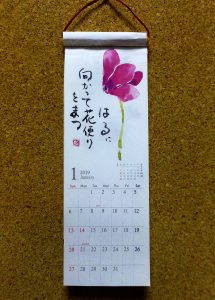 はるに
向かって花便り
をまつ
1 2019
January
Sun Mon Tue Wed Thu Fri Sat
1 2 3 4 5
6 7 8 9 10 11 12
13 14 15 16 17 18 19
20 21 22 23 24 25 26
27 28 29 30 31